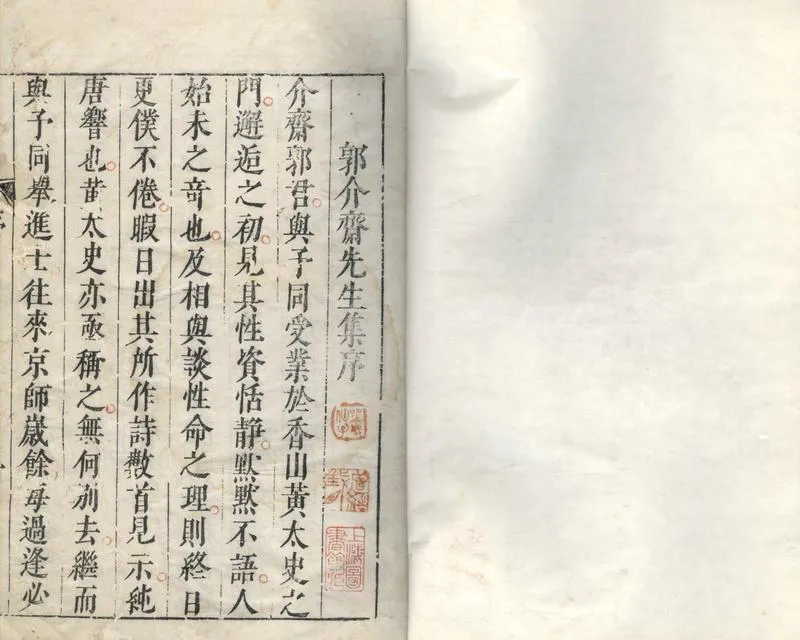 郭介齋先生集序
介齋郭君與予同受業於香山黃太史之
門邂逅之初見其性資恬靜默默不語人
始未之奇也及相與談性命之理則終日
更僕不倦暇日出其所作詩數首見示純
唐響也黃太史亦亟稱之無何別去繼而
與予同舉進士往來京師歲餘每過逢必
上海圖書館藏